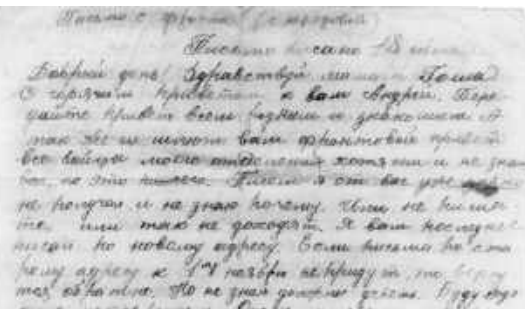 Письмо с фронта
Письмо писано 18
Добрый день! Здравствуй, мама и Гоша
С горячим приветом к вам Андрей. Пере
дайте привет всем родным и знакомым. А
так же шлют вам фронтовой привет
все бойцы моего отделения хотя они и не зна
вас, но это ничего. Писем я от вас уже
не получал и не знаю почему. Или не пише
те, или так не доходят. Я вам последнее
писал по новому адресу. Если письма по ста
рому адресу к 1му ноября не придут, то
тся обратно. Но не знаю должны успеть. Буду